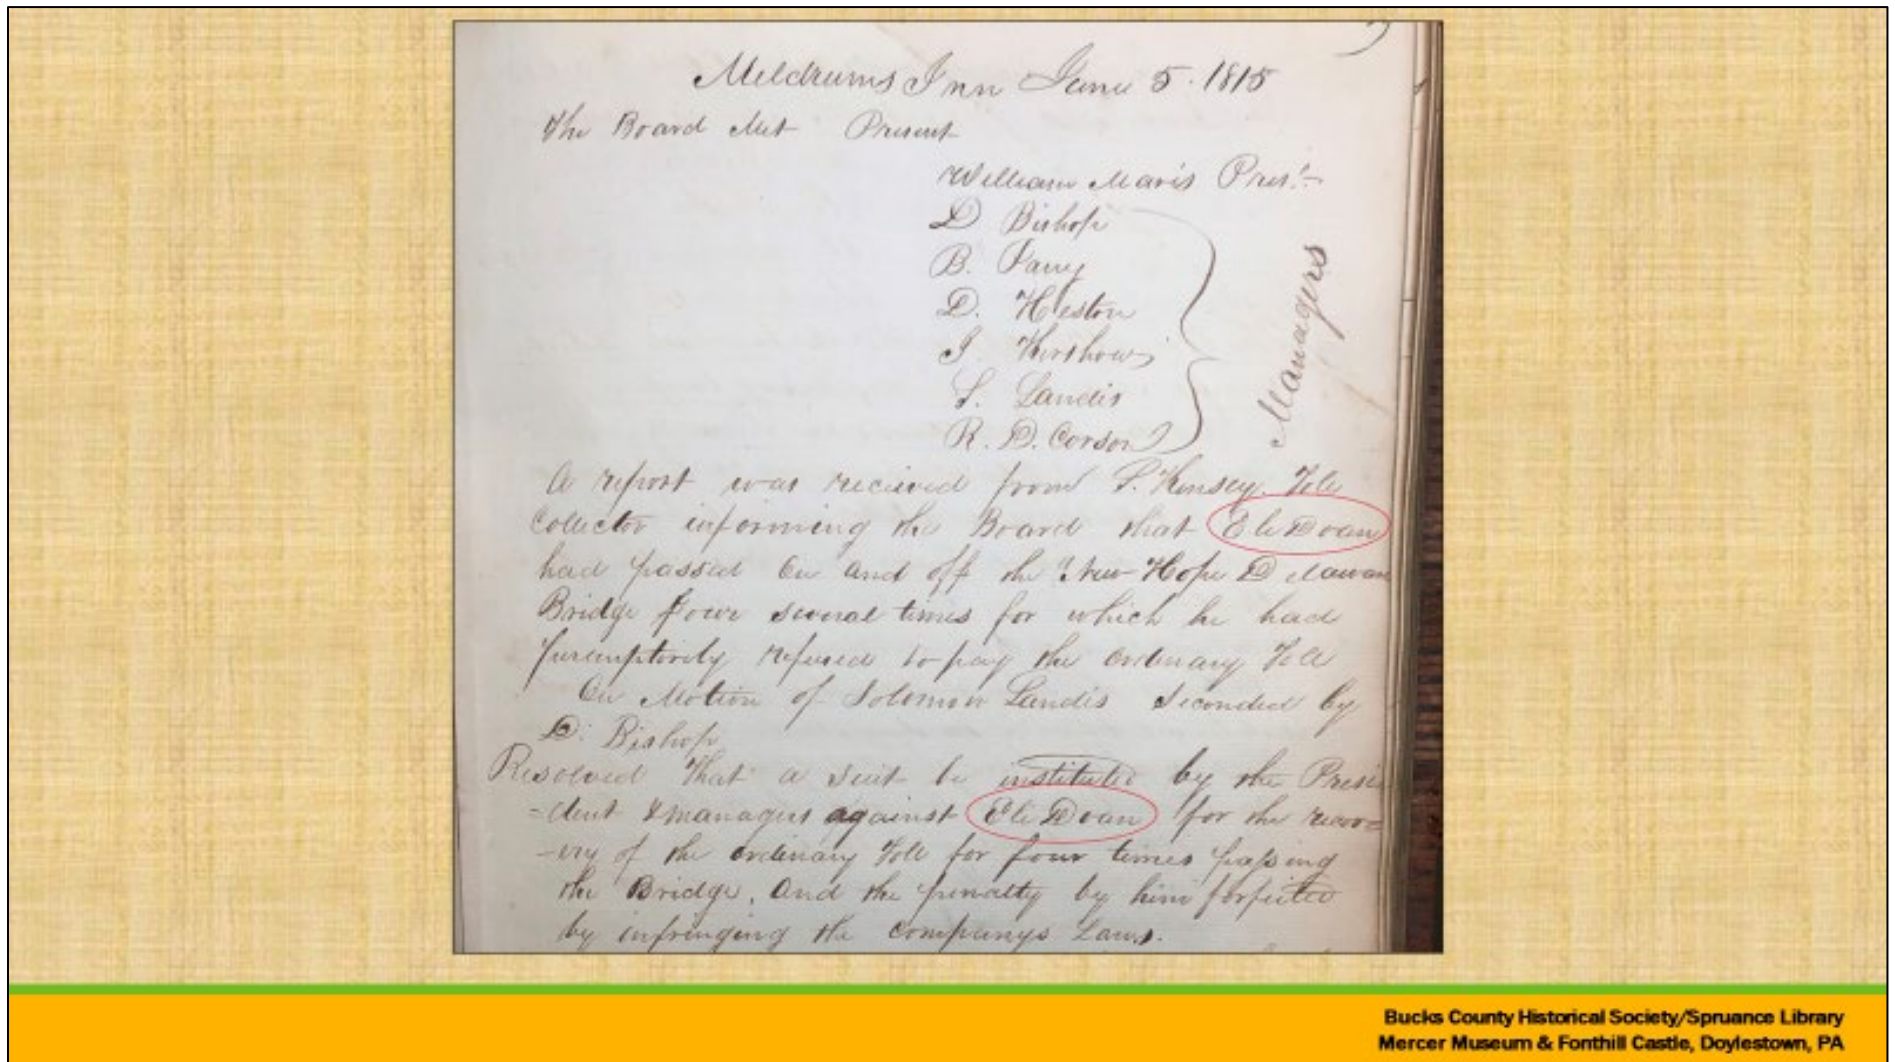 Meldrums Inn June 5. 1815
The Board Met Present
William Maris Pres.t
D Bishop
B. Parry
D. Heston
J. Kershow
S. Landis
R. D. Corson
Managers
A report was recieved from S. Kinsey. Toll
Collector informing the Board that Eli Doan
had passed On and off the New Hope Delawar
Bridge four several times for which he had
peremptorily refused to pay the ordinary Toll
On Motion of Solomon Landis Seconded by
D. Bishop
Resolved That a Suit be instituted by the Presi
=dent & managers against Eli Doan for the recov=
-ery of the ordinary Toll for four times passing
the Bridge, and the penalty by him forfeited
by infringing the companys Laws.
Bucks County Historical Society/Spruance Library
Mercer Museum & Fonthill Castle, Doylestown, PA